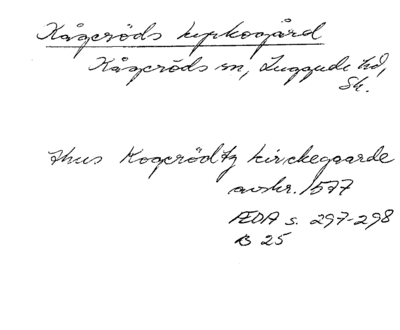 Kågeröds kyrkogård
Kågeröds sn, Luggude hd,
Sk.
thus Kogerödtz kirckegaarde
avskr. 1577
ÆDA s. 297-298
B 25